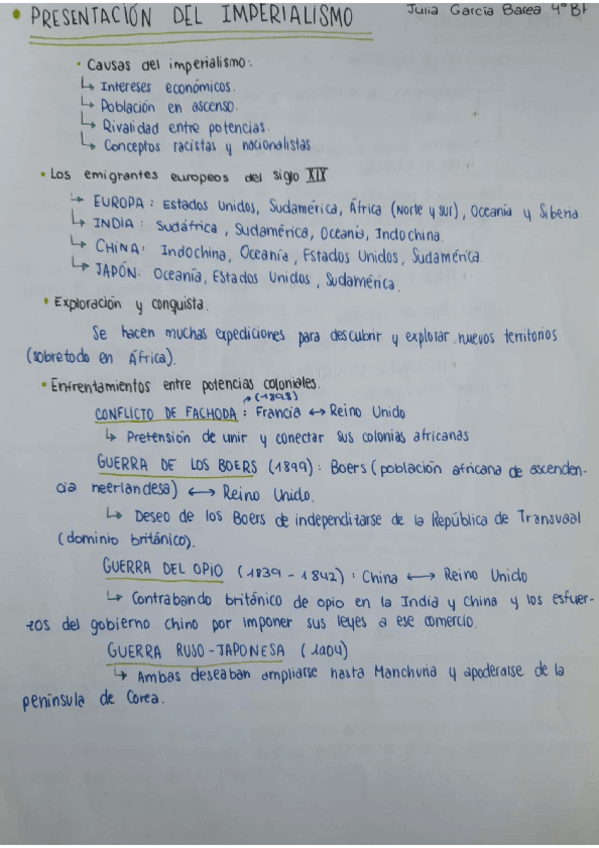 • PRESENTACIÓN DEL IMPERIALISMO
Julia García Barea 4º B1
• Causas del imperialismo:
↳ Intereses económicos.
↳ Población en ascenso.
↳ Rivalidad entre potencias.
↳ Conceptos racistas y nacionalistas
• Los emigrantes europeos del siglo XIX
↳ EUROPA: Estados Unidos, Sudamérica, África (Norte y sur), Oceanía y Siberia
↳ INDIA: Sudáfrica, Sudamérica, Oceanía, Indochina.
↳ CHINA: Indochina, Oceanía, Estados Unidos, Sudamérica.
↳ JAPÓN: Oceanía, Estados Unidos, Sudamérica.
• Exploración y conquista.
Se hacen muchas expediciones para descubrir y explorar nuevos territorios
(sobretodo en África).
• Enfrentamientos entre potencias coloniales.
(1898)
CONFLICTO DE FACHODA: Francia ↔ Reino Unido
↳ Pretensión de unir y conectar sus colonias africanas
GUERRA DE LOS BOERS (1899): Boers (población africana de ascenden-
cia neerlandesa) ↔ Reino Unido.
↳ Deseo de los Boers de independitarse de la República de Transvaal
(dominio británico).
GUERRA DEL OPIO (1839-1842): China ↔ Reino Unido
↳ Contrabando británico de opio en la India y China y los esfuer-
zos del gobierno chino por imponer sus leyes a ese comercio.
GUERRA RUSO-JAPONESA (1904)
↳ Ambas deseaban ampliarse hasta Manchuria y apoderarse de la
península de Corea.